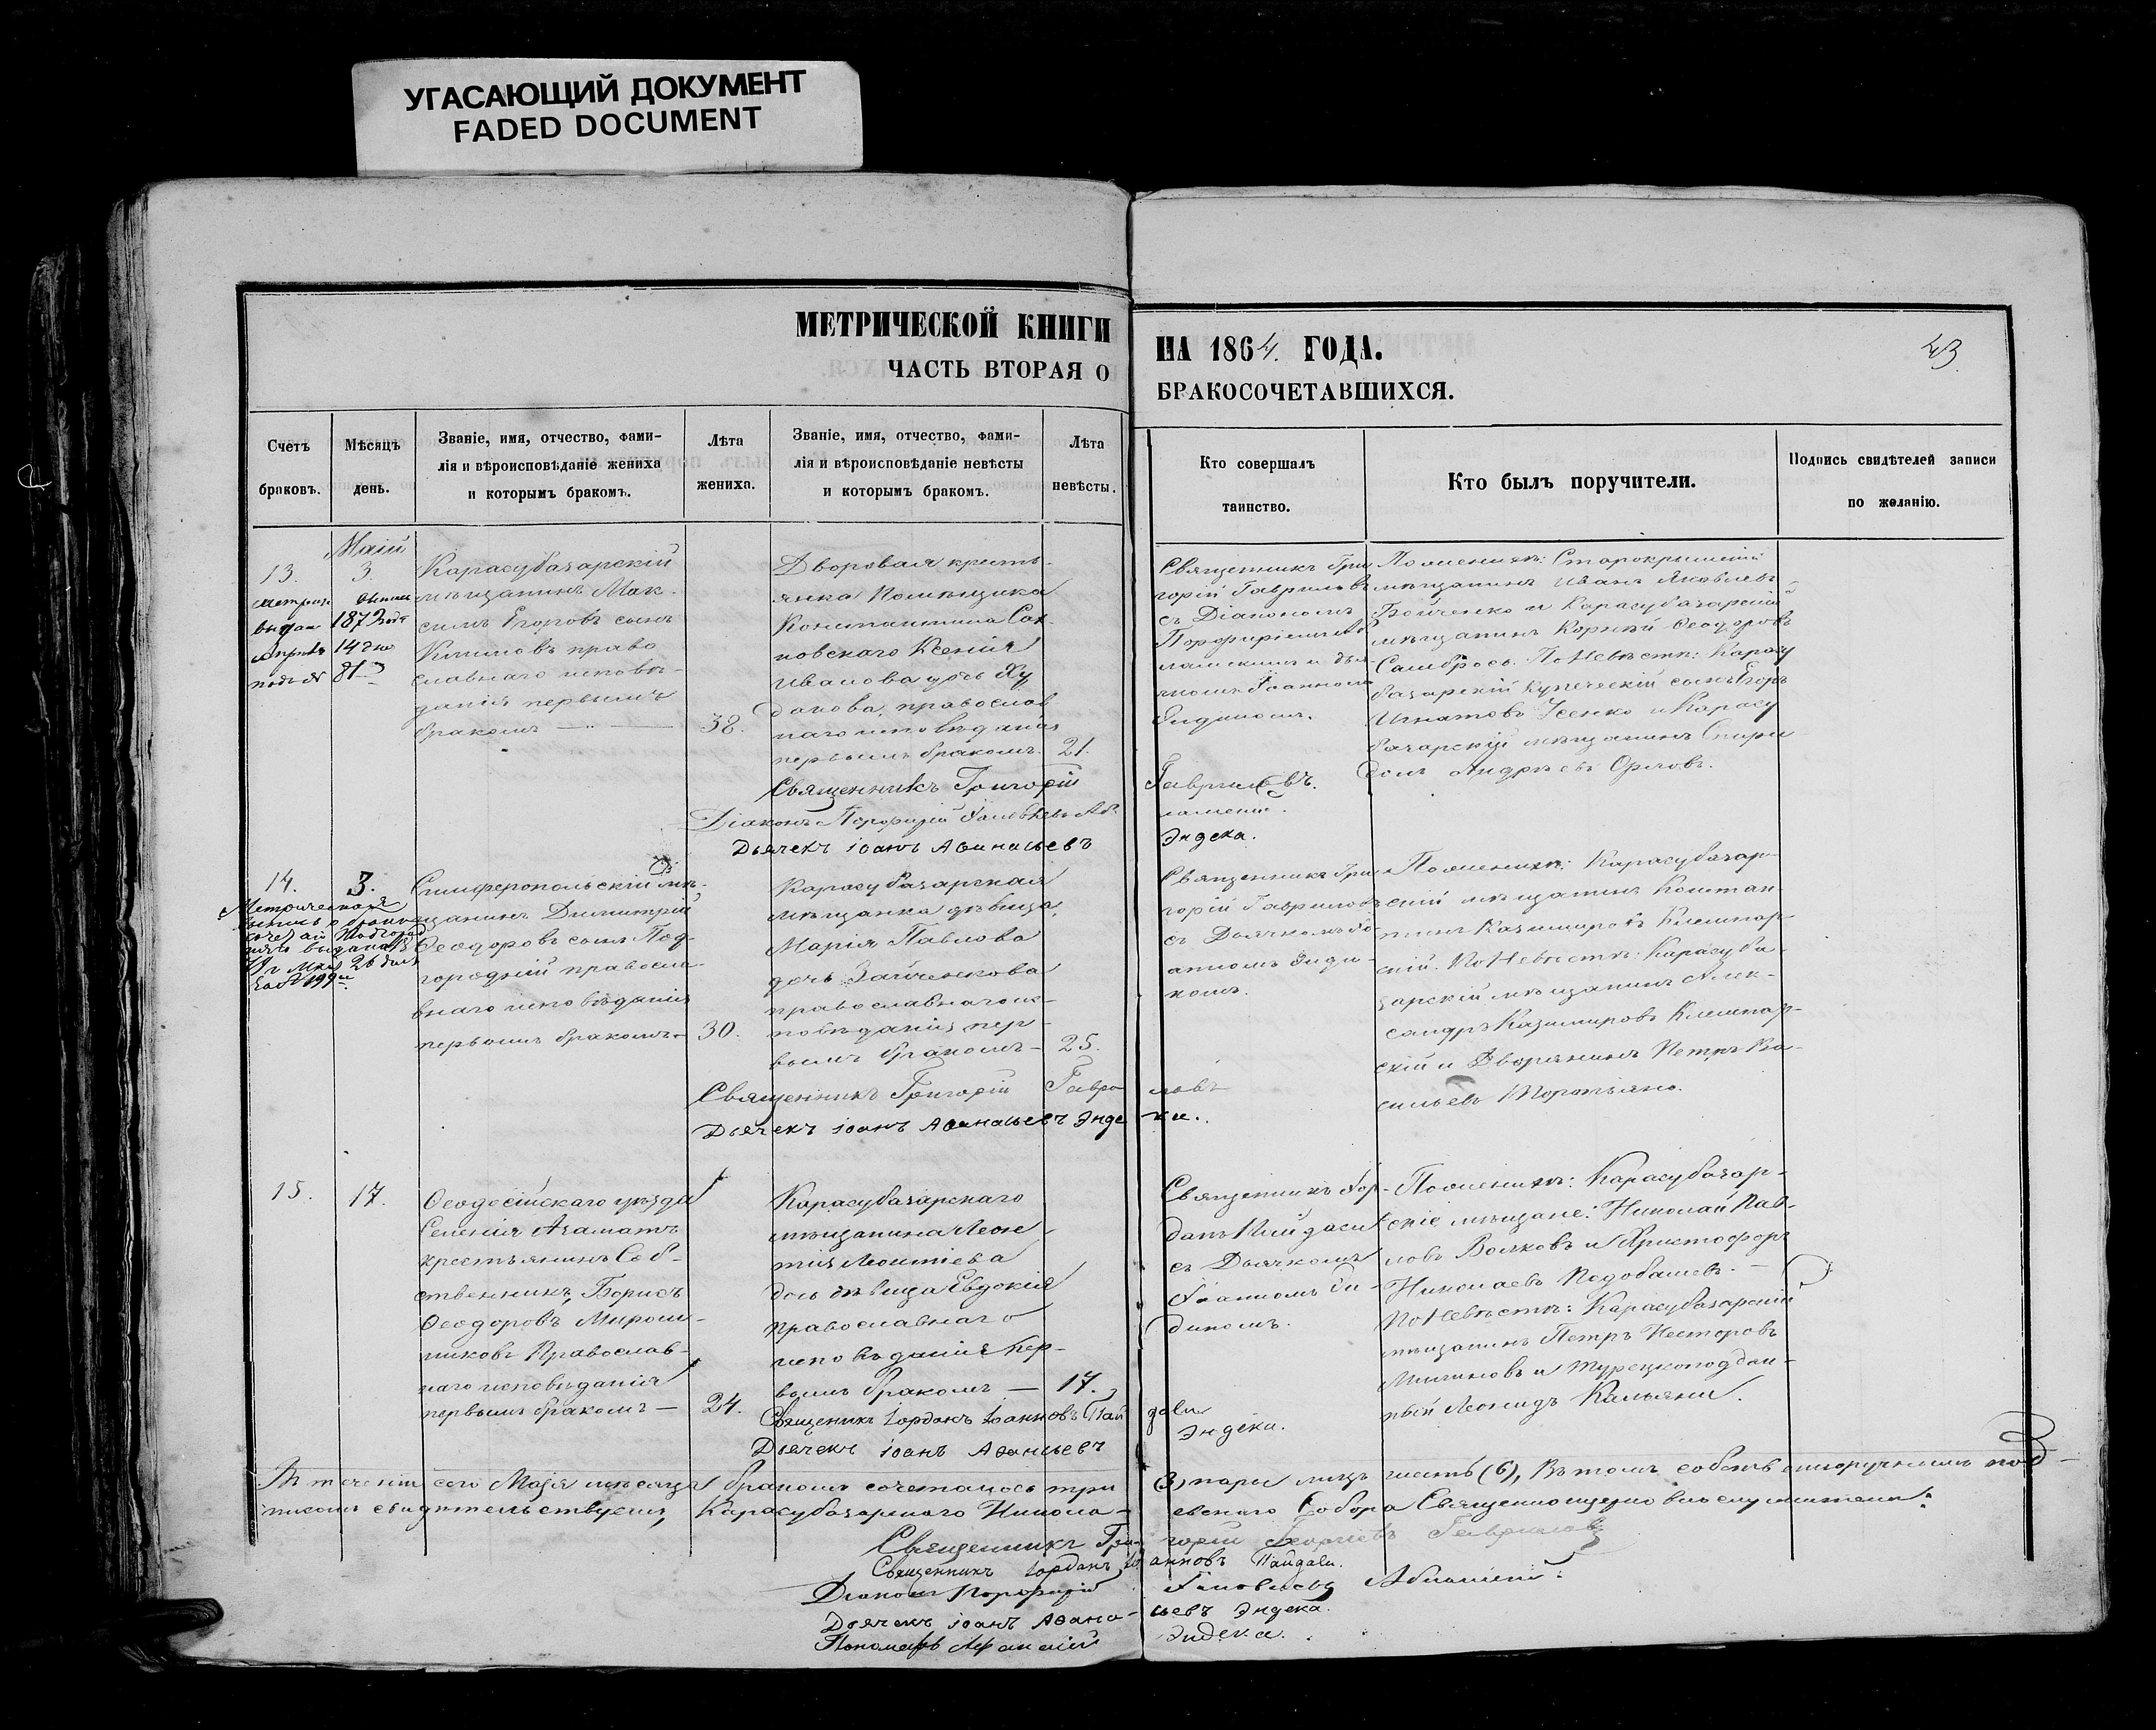 УГАСАЮЩИЙ ДОКУМЕНТ
FADED DOCUMENT
МЕТРИЧЕСКОЙ КНИГИ
НА 1864. ГОДА.
43
ЧАСТЬ ВТОРАЯ О
БРАКОСОЧЕТАВШИХСЯ.
Счетъ
браковъ.
Мѣсяцъ
день.
Званіе, имя, отчество, фами-
лія и вѣроисповѣданіе жениха
и которымъ бракомъ.
Лѣта
жениха.
Званіе, имя, отчество, фами-
лія и вѣроисповѣданіе невѣсты
и которымъ бракомъ.
Лѣта
невѣсты.
Кто совершалъ
таинство.
Кто былъ поручители.
Подпись свидѣтелей записи
по желанію.
Маій
13.
3.
выдан 1872 года
Апрѣля 14 дня
подъ № 81
Карасубазарскій
мѣщанинъ Мак-
симъ Егоровъ сынъ
Климовъ право
славнаго исповѣ-
данія первымъ
бракомъ —
38.
Дворовая кресть-
янка Помѣщика
Константина
Ксенія
Иванова дочь Ху
дакова, православ
наго исповѣданія
первымъ бракомъ.
21.
Священникъ Гри
горій Гавриловъ
съ Діакономъ
Іоанномъ
По женихѣ: Старокрымскій
мѣщанинъ Иванъ Яковлевъ
Бойченко и Карасубазарскій
мѣщанинъ Корнѣй Ѳеодоровъ
По Невѣстѣ: Карасу
базарскій купеческій сынъ Егоръ
Игнатовъ Усенко и Карасу
базарскій мѣщанинъ Спири
донъ Андреевъ Орловъ.
Священникъ Григорій Гавриловъ.
Діаконъ Порфирій
Дьячекъ Іоанъ Аѳанасьевъ Эндека.
14.
3.
Метрическая
выдана
26 дня
199
Симферопольскій мѣ-
щанинъ Димитрій
Ѳеодоровъ сынъ Под-
городній правосла-
внаго исповѣданія
первымъ бракомъ
30.
Карасубазарская
мѣщанка дѣвица
Марія Павлова
дочь Зайченкова
православнаго ис-
повѣданія пер-
вымъ бракомъ —
25.
Священникъ Гри
горій Гавриловъ
съ Дьячкомъ Іо-
анномъ Энде-
комъ.
По женихѣ: Карасубазар-
скій мѣщанинъ Констан-
тинъ Казимировъ
скій. По Невѣстѣ: Карасуба-
зарскій мѣщанинъ Алек-
сандръ Казимировъ
скій и Дворянинъ Петръ Ва-
сильевъ
Священникъ Григорій Гавриловъ
Дьячекъ Іоанъ Аѳанасьевъ Эндека.
15.
17.
Ѳеодосійскаго уѣзда
Селенія Азаматъ
крестьянинъ Соб-
ственникъ, Борисъ
Ѳеодоровъ Мирош-
никовъ Православ-
наго исповѣданія
первымъ бракомъ —
24.
Карасубазарскаго
мѣщанина Леон-
тія Леонтіева
дочь дѣвица Евдокія
православнаго
исповѣданія пер-
вымъ бракомъ —
17.
Священникъ Іор-
данъ Пайдаси
съ Дьячкомъ
Іоанномъ Эн-
дикомъ.
По женихѣ: Карасубазар-
скіе мѣщане: Николай Пав-
ловъ Волковъ и Христофоръ
Николаевъ Подобашевъ. —
По Невѣстѣ: Карасубазарскій
мѣщанинъ Петръ Несторовъ
и Турецкоподдан-
ный Леонидъ
Священникъ Іорданъ Іоанновъ Пайдаси
Дьячекъ Іоанъ Аѳанасьевъ Эндека.
Въ теченіи сего Маія мѣсяца бракомъ сочеталось три (3) пары лицъ шесть (6), Въ томъ собственноручнымъ под-
писомъ свидѣтельствуемъ, Карасубазарскаго Никола-евскаго Собора Священноцерковнослужители:
Священникъ Григорій Георгіевъ Гавриловъ
Священникъ Іорданъ Іоанновъ Пайдаси.
Діаконъ Порфирій
Дьячекъ Іоанъ Аѳанасьевъ Эндека.
Пономарь Аѳанасій Эндека.